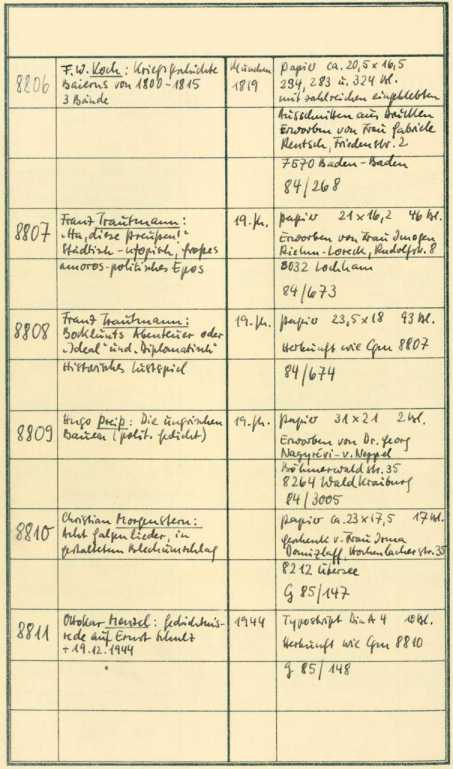 8806
F.W. Koch: Kriegsgeschichte
Baierns von 1800-1815
3 Bände
München
1819
papier ca. 20,5 x 16,5
294, 283 u. 324 Bl.
mit zahlreichen eingeklebten
Ausschnitten aus Drucken
Erworben von Frau Gabriele
Rentsch, Friedenstr. 2
7570 Baden-Baden
84/268
8807
Franz Trautmann:
"Ha, diese Preußen!"
Städtisch-utopisch, großes
amoros-politisches Epos
19. Jh.
papier 21 x 16,2 46 Bl.
Erworben von Frau Imogen
Riehm-Loreck, Rudolfstr. 8
8032 Lochham
84/673
8808
Franz Trautmann:
Abenteuer oder
"Ideal" und "Diplomatisch"
Historisches Lustspiel
19. Jh.
papier 23,5 x 18 93 Bl.
Herkunft wie Cgm 8807
84/674
8809
Hugo Preiß: Die ungrischen
Bauern (polit. Gedicht)
19. Jh.
papier 31 x 21 2 Bl.
Erworben von Dr. Georg
Nagyrévi-v. Neppel
Böhmerwaldstr. 35
8264 Waldkraiburg
84/3005
8810
Christian Morgenstern:
Acht Galgenlieder, in
gestaltetem Blechumschlag
papier ca. 23 x 17,5 17 Bl.
Geschenk v. Frau Irma
Domizlaff, str. 35
8212 Übersee
G 85/147
8811
Ottokar Menzel: Gedächtnis-
rede auf Ernst Schulz
+ 19.12.1944
1944
Typoskript Din A 4 10 Bl.
Herkunft wie Cgm 8810
G 85/148